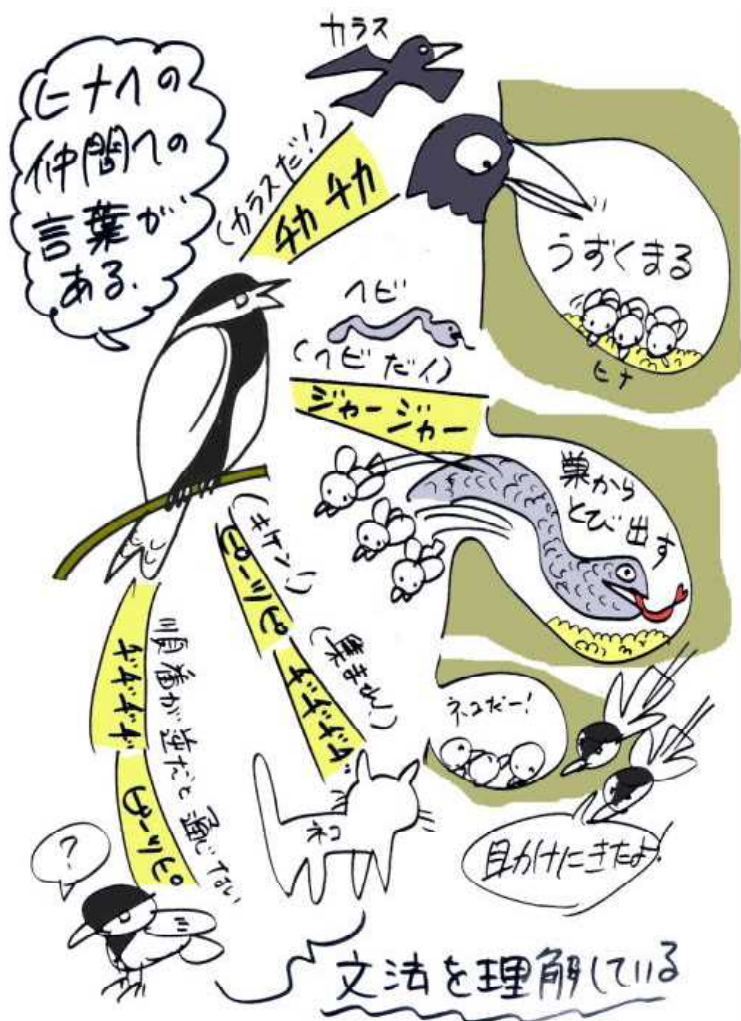 ヒナへの
仲間への
言葉が
ある.
カラス
(カラスだ!)
チカ チカ
うずくまる
ヒナ
ヘビ
(ヘビだ!)
ジャー ジャー
巣から
とび出す
(キケン!)
ピーツピ
(集まれ!)
ヂヂヂヂ
ネコだー!
ネコ
助けにきたよ!
ヂヂヂヂ
ピーツピ
順番が逆だと通じない
?
文法を理解している